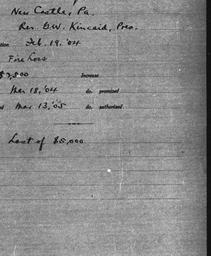 New Castle, Pa.
Rev. G.W. Kincaid, Pres.
tion Feb. 19, '04
Fire Loss
$7,500 Increase
Mar 18, '04 do. promised
Mar 13, '05 do. authorized
Last of $5,000